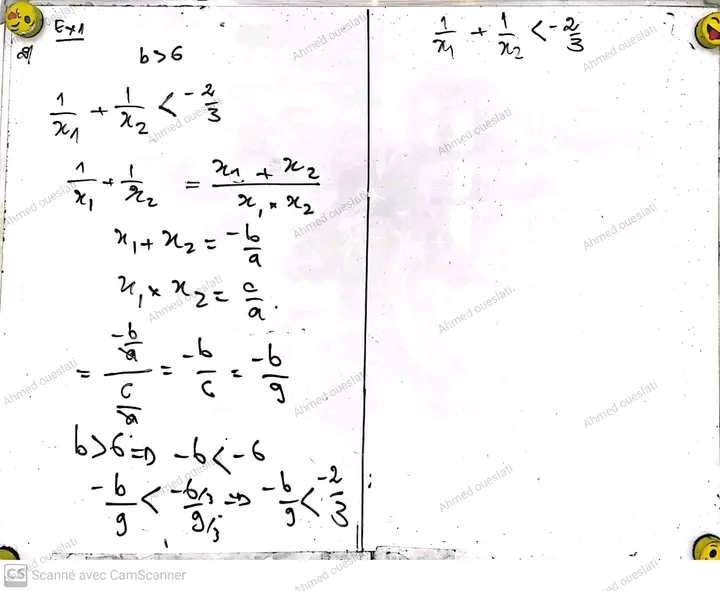 Ex1
b>6
1/x₁ + 1/x₂ < -2/3
1/x₁ + 1/x₂ = (x₁ + x₂)/(x₁ × x₂)
x₁ + x₂ = -b/a
x₁ × x₂ = c/a.
= (-b/a)/(c/a) = -b/c = -b/9
b>6 => -b < -6
-b/9 < (-6/3)/(9/3) => -b/9 < -2/3
1/x₁ + 1/x₂ < -2/3
Ahmed oueslati
CS Scanné avec CamScanner